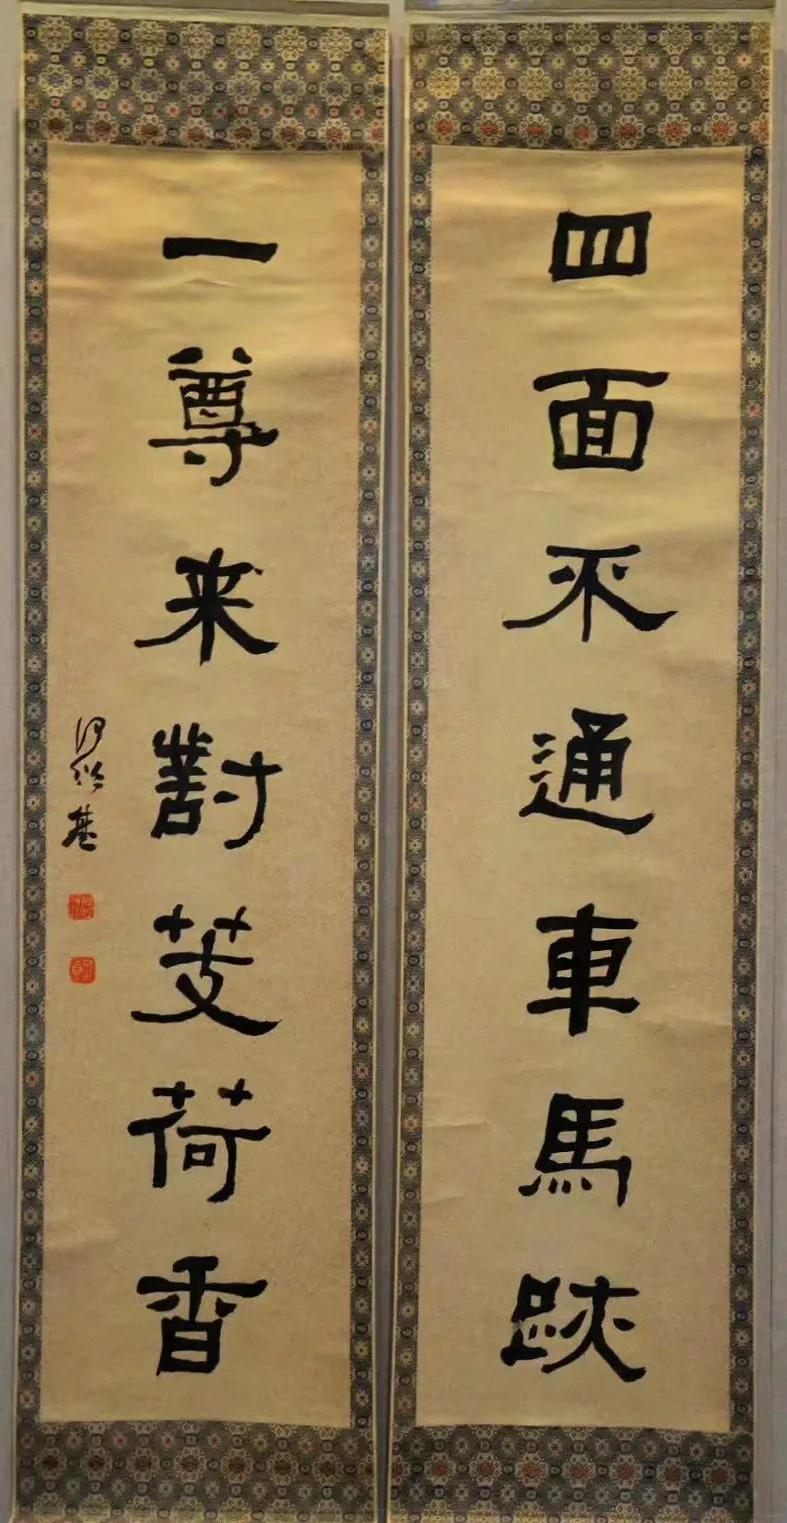 四面不通車馬跡
一尊来對芰荷香
何紹基